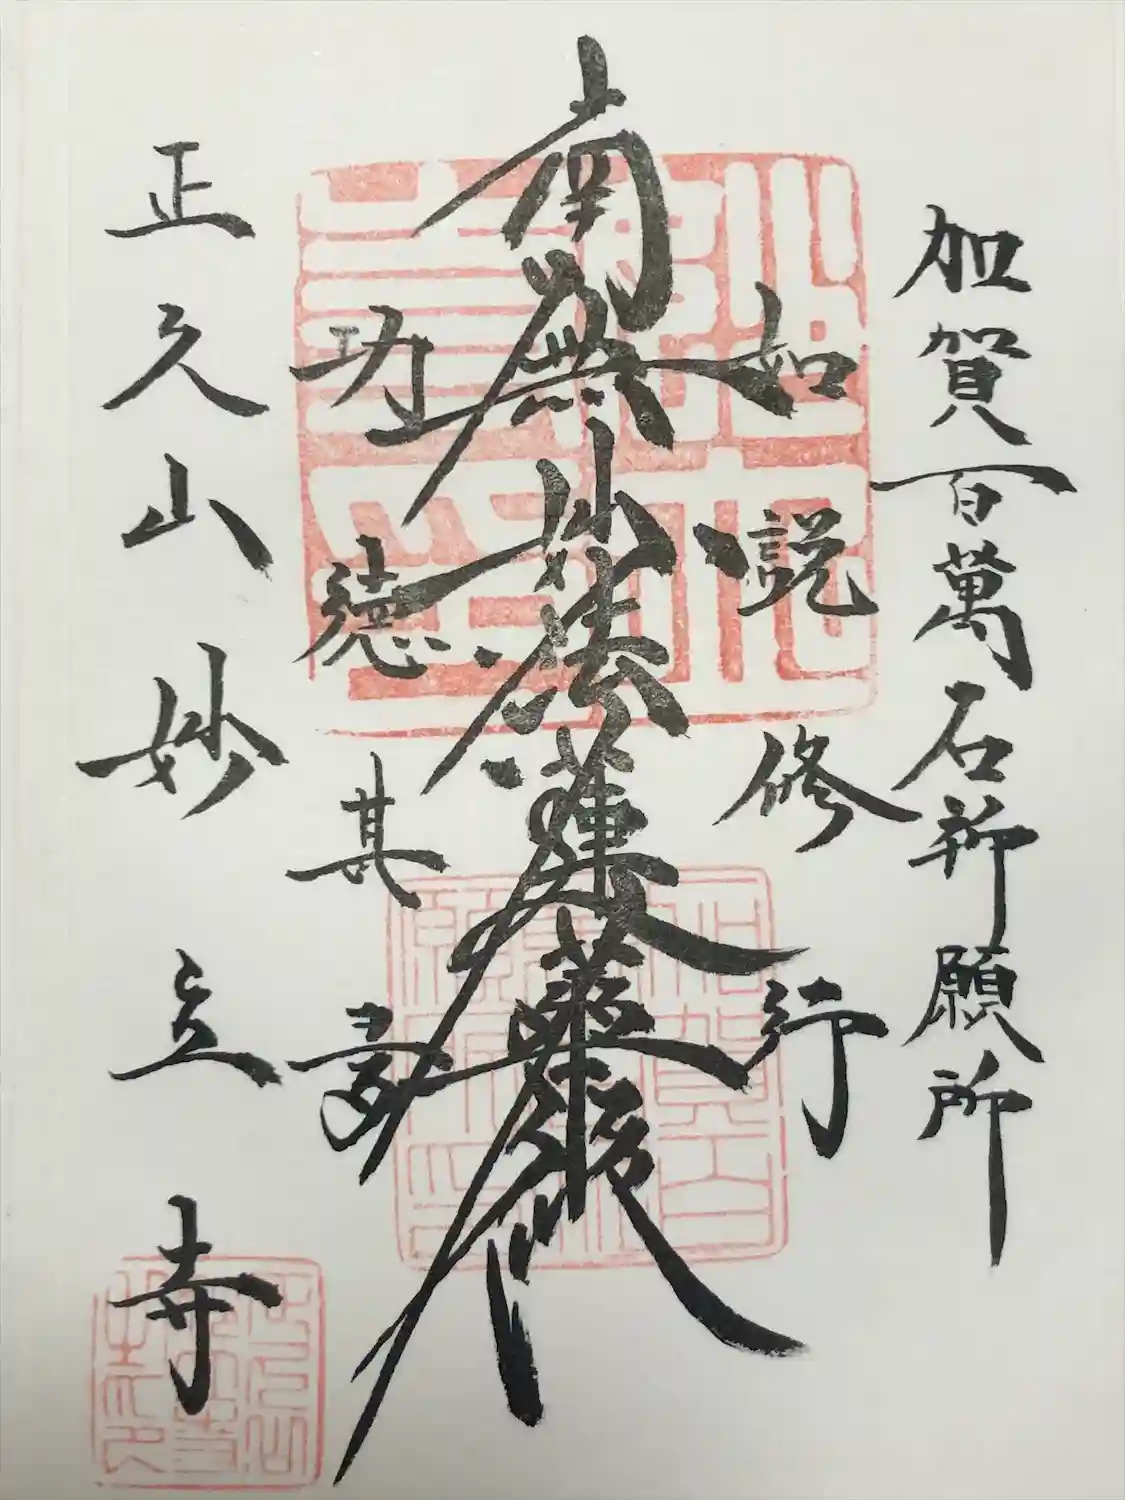 加賀百萬石祈願所
如説修行
南無妙法蓮華経
功徳其
正久山妙立寺